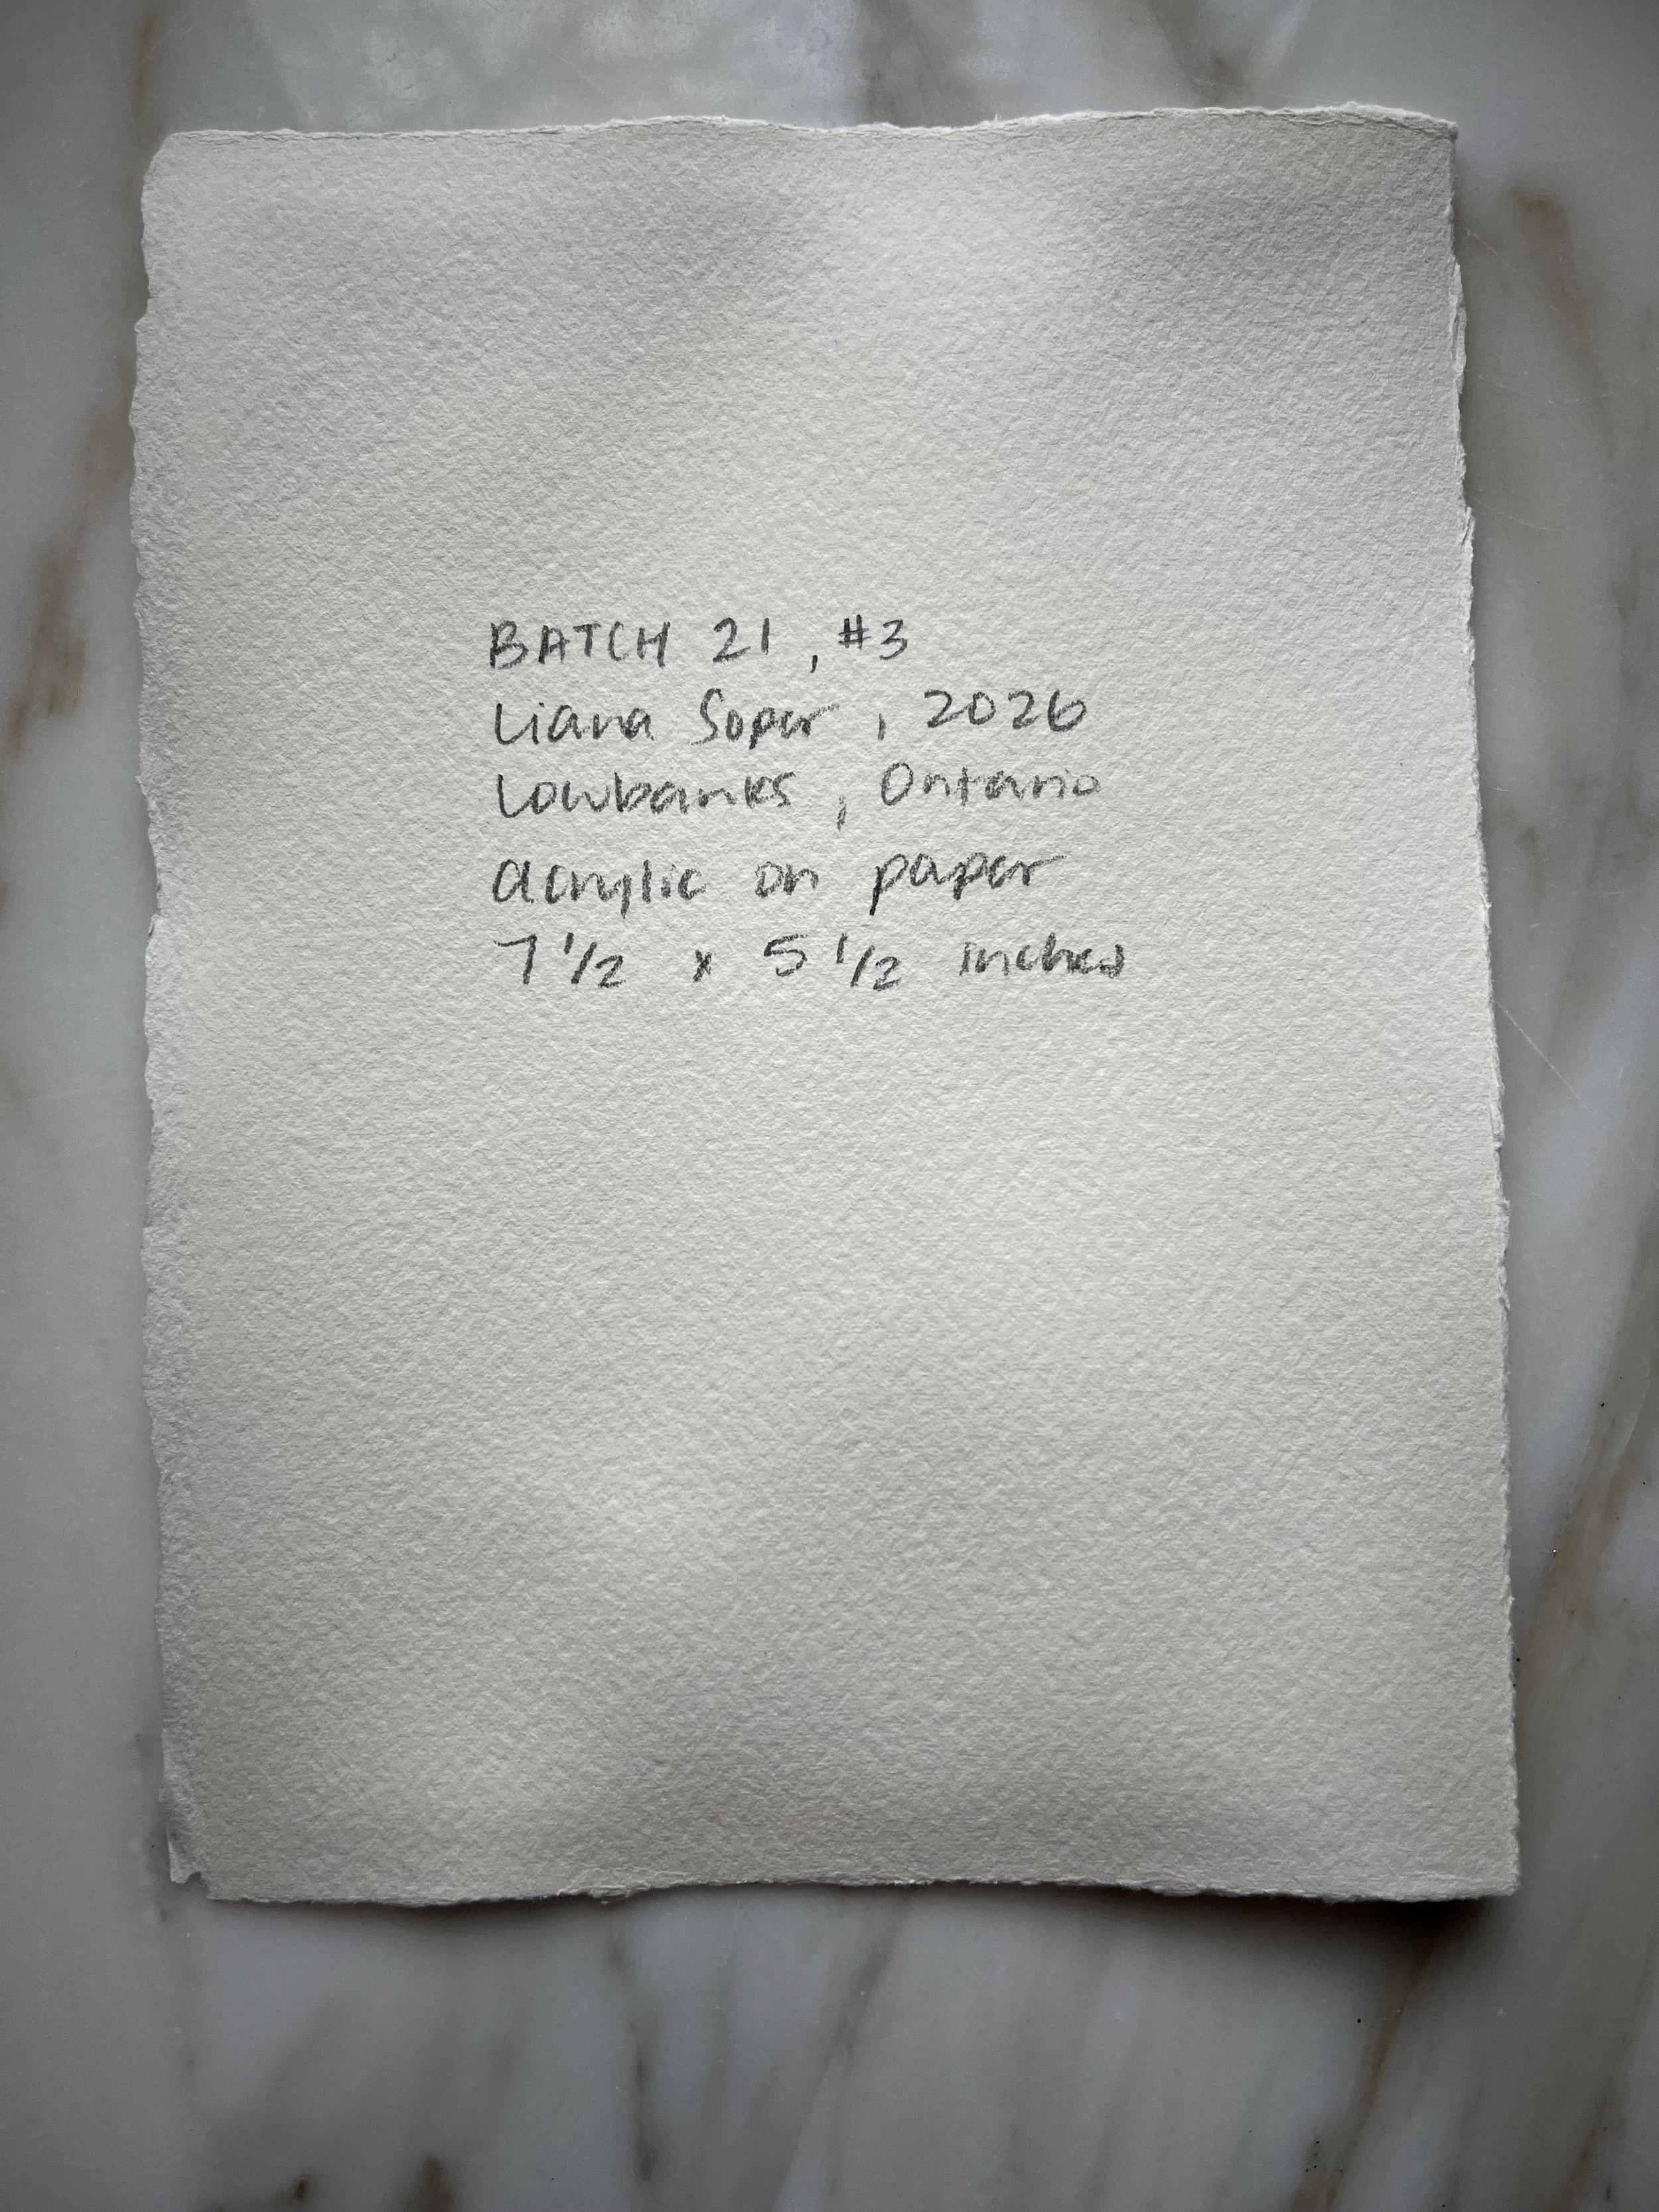 BATCH 21, #3
Liana Soper, 2026
Lowbanks, Ontario
acrylic on paper
7 1/2 x 5 1/2 inches